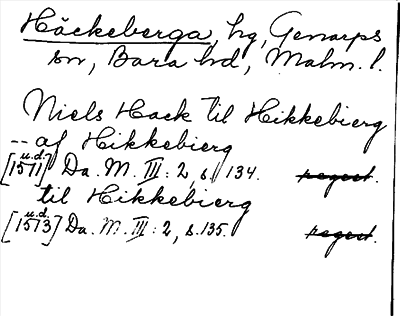 Häckeberga, hg, Genarps
sn, Bara hd, Malm. l.
Niels Hack til Hikkebierg
-- af Hikkebierg
[u.d. 1511] Da. M. III: 2, s. 134. regest.
til Hikkebierg
[u.d. 1513] Da. M. III: 2, s. 135. regest.